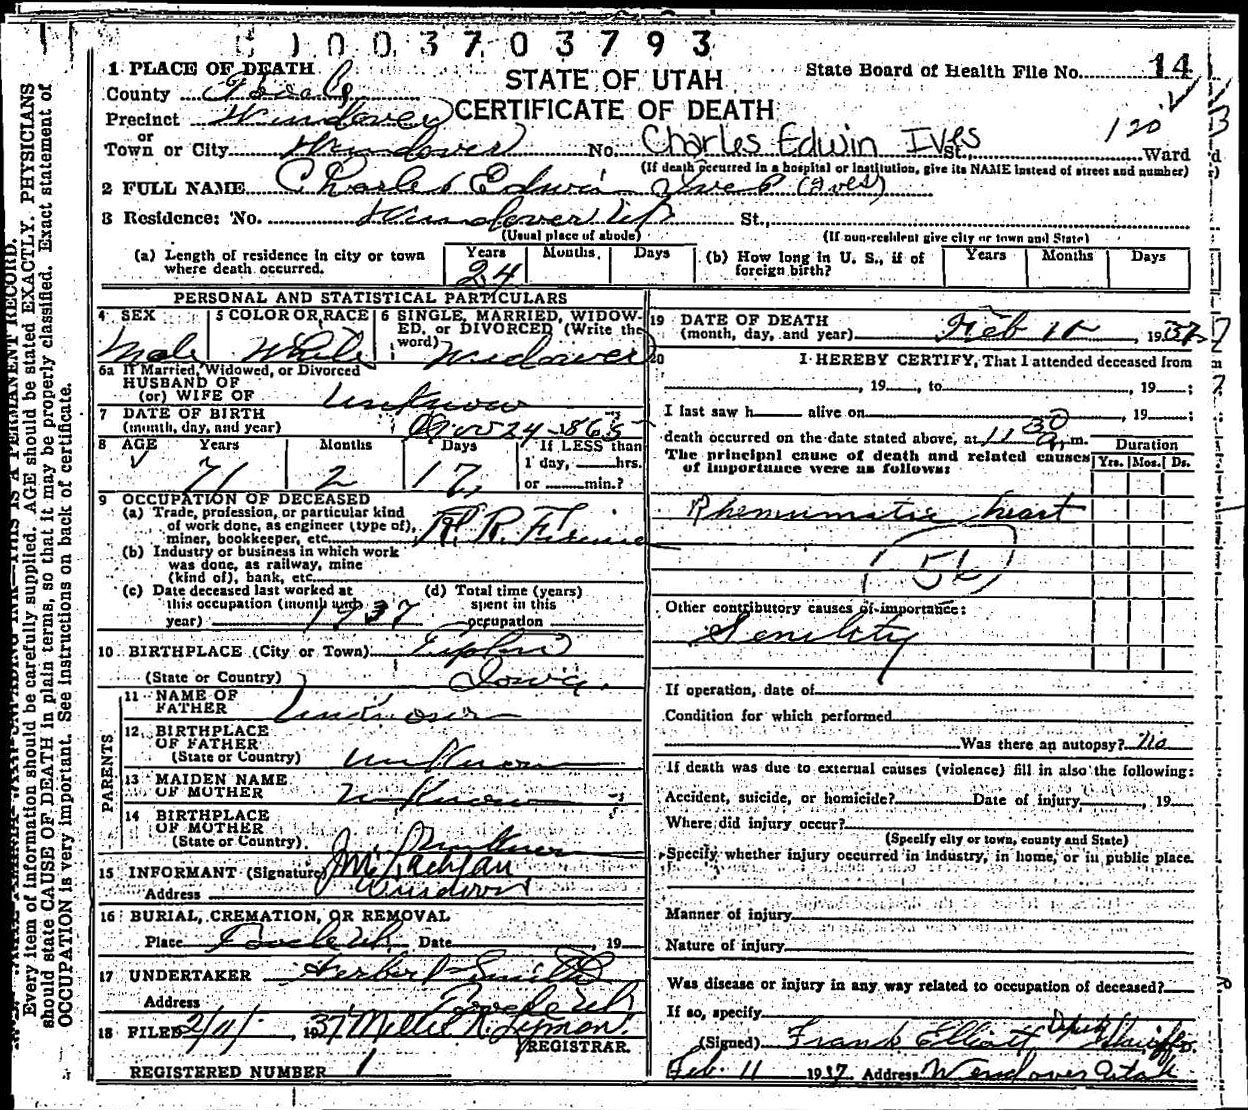 0 1 0 0 3 7 0 3 7 9 3
STATE OF UTAH
CERTIFICATE OF DEATH
State Board of Health File No. 14
1 PLACE OF DEATH
County Tooele
Precinct Wendover
or
Town or City Wendover No. Charles Edwin IVes St., Ward
120
(If death occurred in a hospital or institution, give its NAME instead of street and number)
2 FULL NAME Charles Edwin Ives (Ives)
3 Residence: No. Wendover Ut St.,
(Usual place of abode) (If non-resident give city or town and State)
(a) Length of residence in city or town where death occurred. Years 24 Months Days
(b) How long in U. S., if of foreign birth? Years Months Days
PERSONAL AND STATISTICAL PARTICULARS
4 SEX Male
5 COLOR OR RACE White
6 SINGLE, MARRIED, WIDOWED, or DIVORCED (Write the word) Widower
6a If Married, Widowed, or Divorced
HUSBAND OF
(or) WIFE OF Unknow
7 DATE OF BIRTH
(month, day, and year) Nov 24-1865
8 AGE Years 71 Months 2 Days 17
If LESS than
1 day, hrs.
or min.?
9 OCCUPATION OF DECEASED
(a) Trade, profession, or particular kind
of work done, as engineer (type of),
miner, bookkeeper, etc.
R. R.
(b) Industry or business in which work
was done, as railway, mine
(kind of), bank, etc.
(c) Date deceased last worked at
this occupation (month and
year) 1937
(d) Total time (years)
spent in this
occupation
10 BIRTHPLACE (City or Town) Tipton
(State or Country) Iowa.
PARENTS
11 NAME OF
FATHER Unknown
12 BIRTHPLACE
OF FATHER
(State or Country) unknown
13 MAIDEN NAME
OF MOTHER unknown
14 BIRTHPLACE
OF MOTHER
(State or Country) Unknown
15 INFORMANT (Signature) J McLachlan
Address Wendover
16 BURIAL, CREMATION, OR REMOVAL
Place Tooele Ut Date , 19
17 UNDERTAKER Herbert Smith
Address Tooele Ut
18 FILED 2/11/ 1937 Millie R. Lyman.
REGISTRAR.
REGISTERED NUMBER 1
19 DATE OF DEATH
(month, day, and year) Feb 10 , 1937
20 I HEREBY CERTIFY, That I attended deceased from
, 19 , to , 19 ;
I last saw h alive on , 19 ;
death occurred on the date stated above, at 11 30 a m.
The principal cause of death and related causes
of importance were as follows:
Duration
Yrs. Mos. Ds.
Rheumatic heart
56
Other contributory causes of importance:
Senility
If operation, date of
Condition for which performed
Was there an autopsy? no
If death was due to external causes (violence) fill in also the following:
Accident, suicide, or homicide? Date of injury , 19
Where did injury occur?
(Specify city or town, county and State)
Specify whether injury occurred in industry, in home, or in public place.
Manner of injury
Nature of injury
Was disease or injury in any way related to occupation of deceased?
If so, specify
(Signed) Frank Elliott Deputy Sheriff M.D.
Feb. 11 1937 Address Wendover Utah
Every item of information should be carefully supplied. AGE should be stated EXACTLY. PHYSICIANS
should state CAUSE OF DEATH in plain terms, so that it may be properly classified. Exact statement of
OCCUPATION is very important. See instructions on back of certificate.